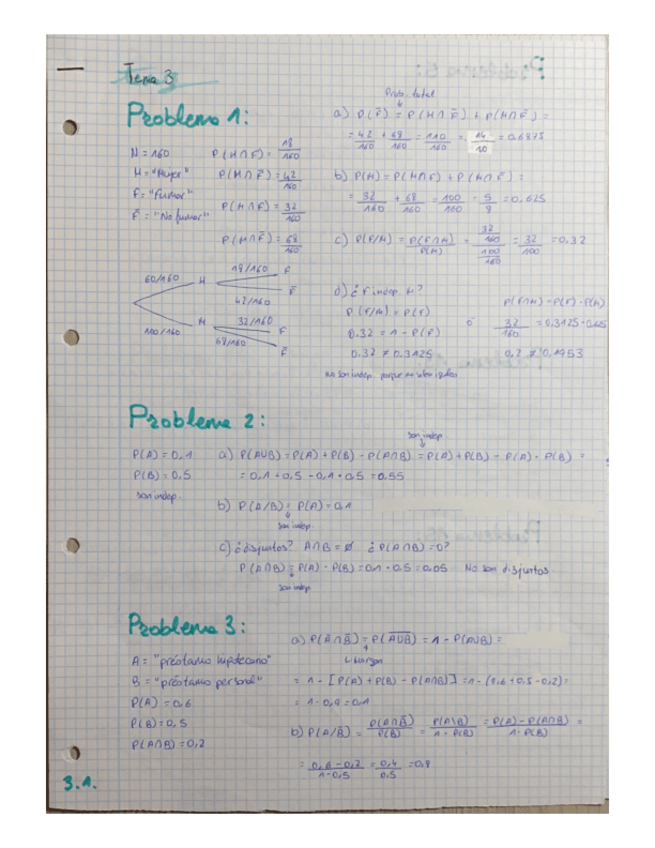 Tema 3
Problema 1:
N = 160
M = "Mujer"
F = "Fumar"
F̄ = "No fumar"
P(H∩F) = 18/160
P(H∩F̄) = 42/160
P(M∩F) = 32/160
P(M∩F̄) = 68/160
60/160 H 18/160 F
42/160 F̄
100/160 M 32/160 F
68/160 F̄
Prob. total
a) P(F̄) = P(M∩F̄) + P(H∩F̄) =
= 42/160 + 68/160 = 110/160 = = 0,6875
b) P(M) = P(M∩F) + P(M∩F̄) =
= 32/160 + 68/160 = 100/160 = 5/8 = 0,625
c) P(F/M) = P(F∩M)/P(M) = 32/160 / 100/160 = 32/100 = 0,32
d) ¿F indep. M?
P(F/M) = P(F)
0,32 = 1 - P(F̄)
0,32 ≠ 0,3125
ó
P(F∩M) = P(F)·P(M)
32/160 = 0,3125·0,625
0,2 ≠ 0,1953
No son indep. porque no salen iguales
Problema 2:
P(A) = 0,1
P(B) = 0,5
son indep.
son indep.
a) P(A∪B) = P(A) + P(B) - P(A∩B) = P(A) + P(B) - P(A) · P(B) =
= 0,1 + 0,5 - 0,1 · 0,5 = 0,55
b) P(A/B) = P(A) = 0,1
son indep.
c) ¿disjuntos? A∩B = ∅ ¿P(A∩B) = 0?
P(A∩B) = P(A) · P(B) = 0,1 · 0,5 = 0,05 No son disjuntos
son indep.
Problema 3:
A = "préstamo hipotecario"
B = "préstamo personal"
P(A) = 0,6
P(B) = 0,5
P(A∩B) = 0,2
a) P(Ā∩B̄) = P(A∪B)‾ = 1 - P(A∪B) =
= 1 - [P(A) + P(B) - P(A∩B)] = 1 - (0,6 + 0,5 - 0,2) =
= 1 - 0,9 = 0,1
b) P(A/B̄) = P(A∩B̄)/P(B̄) = P(A\B)/1 - P(B) = P(A) - P(A∩B)/1 - P(B) =
= 0,6 - 0,2/1 - 0,5 = 0,4/0,5 = 0,8
3.1.